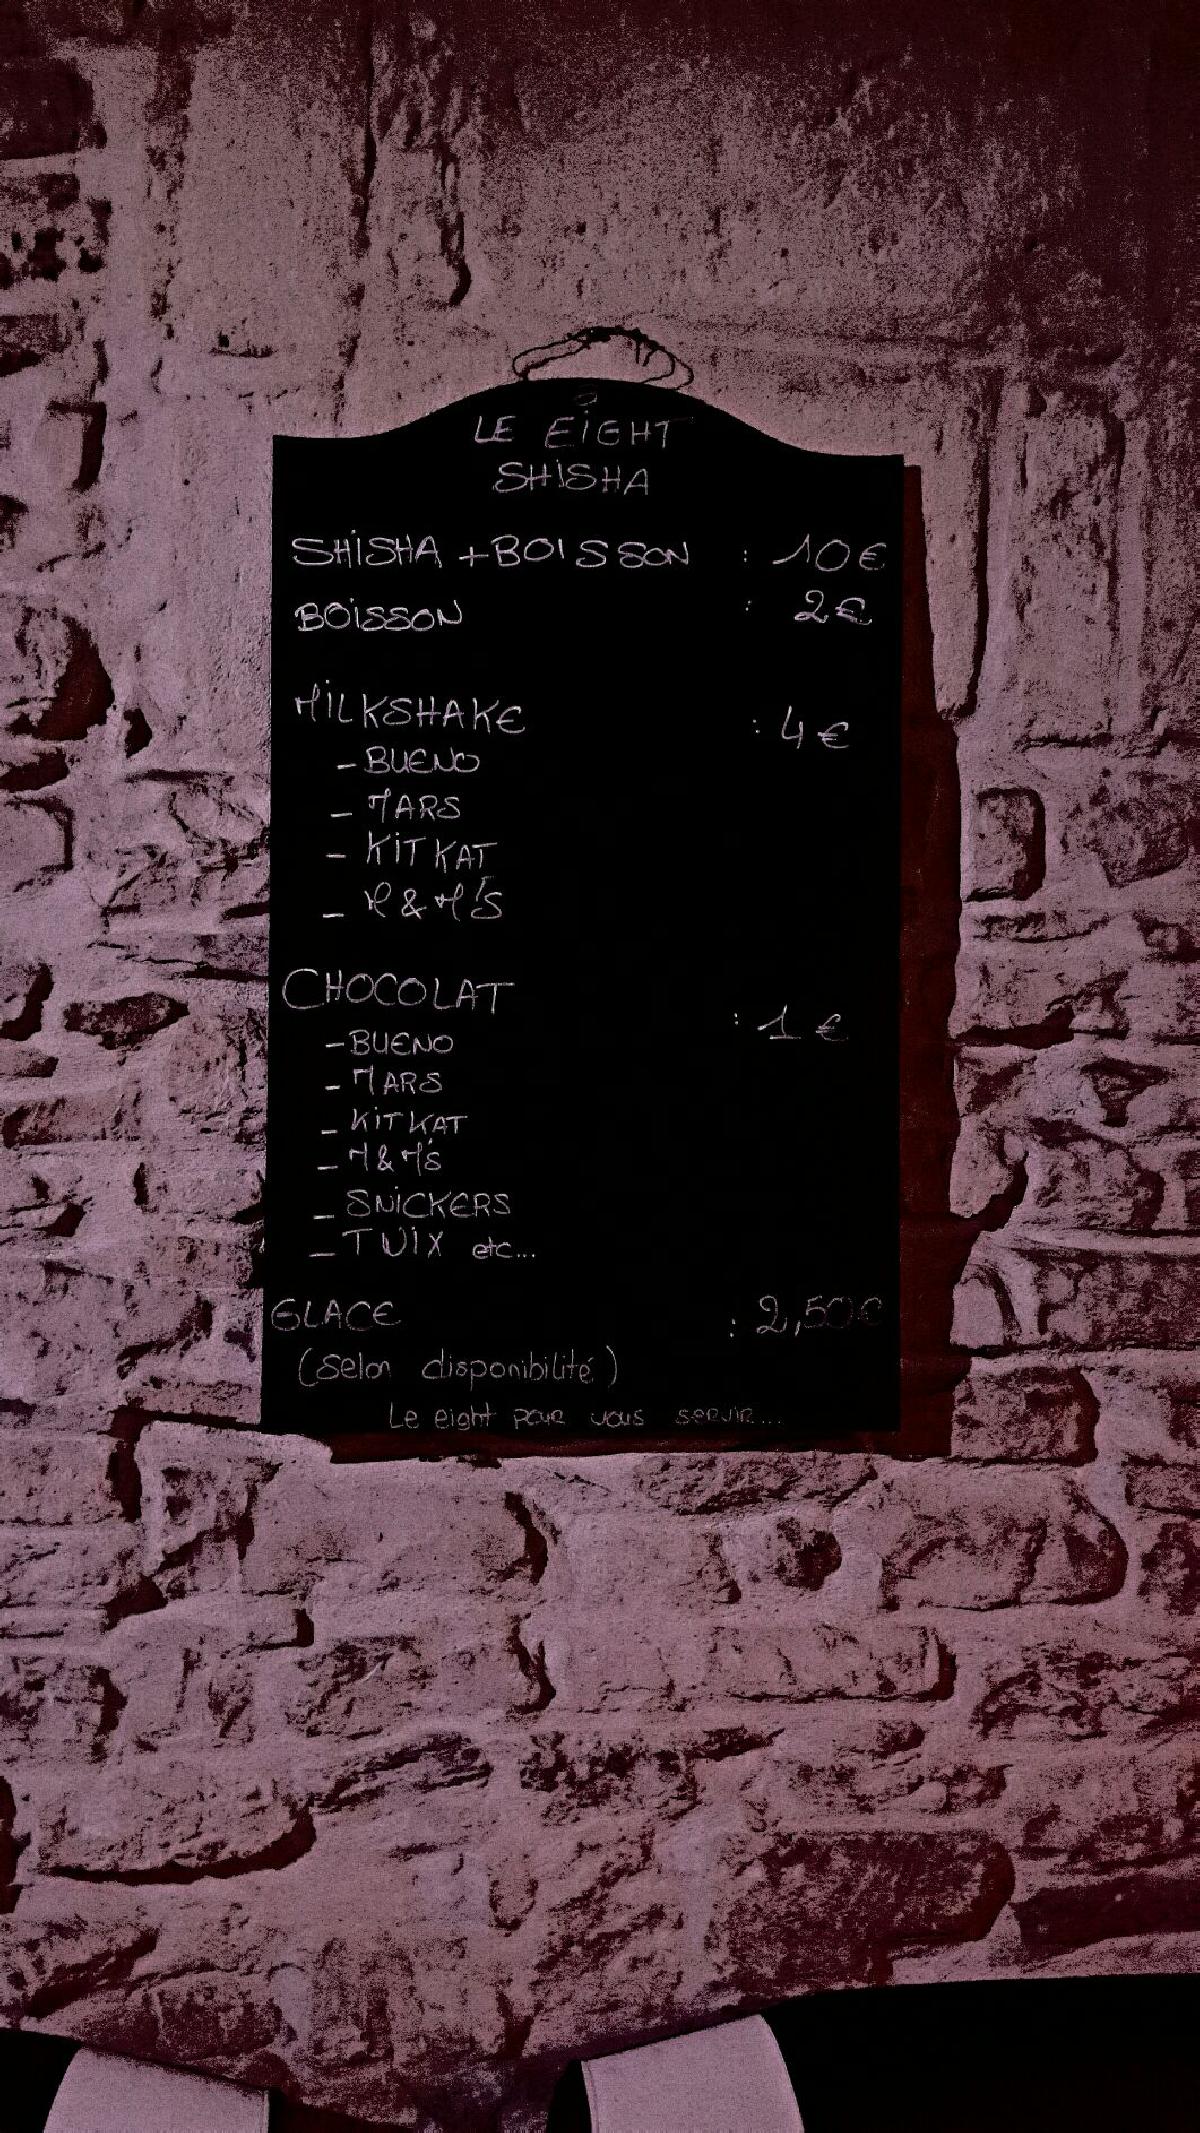 LE EIGHT
SHISHA
SHISHA + BOISSON : 10€
BOISSON : 2€
MILKSHAKE : 4€
- BUENO
- MARS
- KITKAT
- M&M'S
CHOCOLAT : 1€
- BUENO
- MARS
- KITKAT
- M&M'S
- SNICKERS
- TWIX etc...
GLACE : 2,50€
(Selon disponibilité)
Le eight pour vous servir...